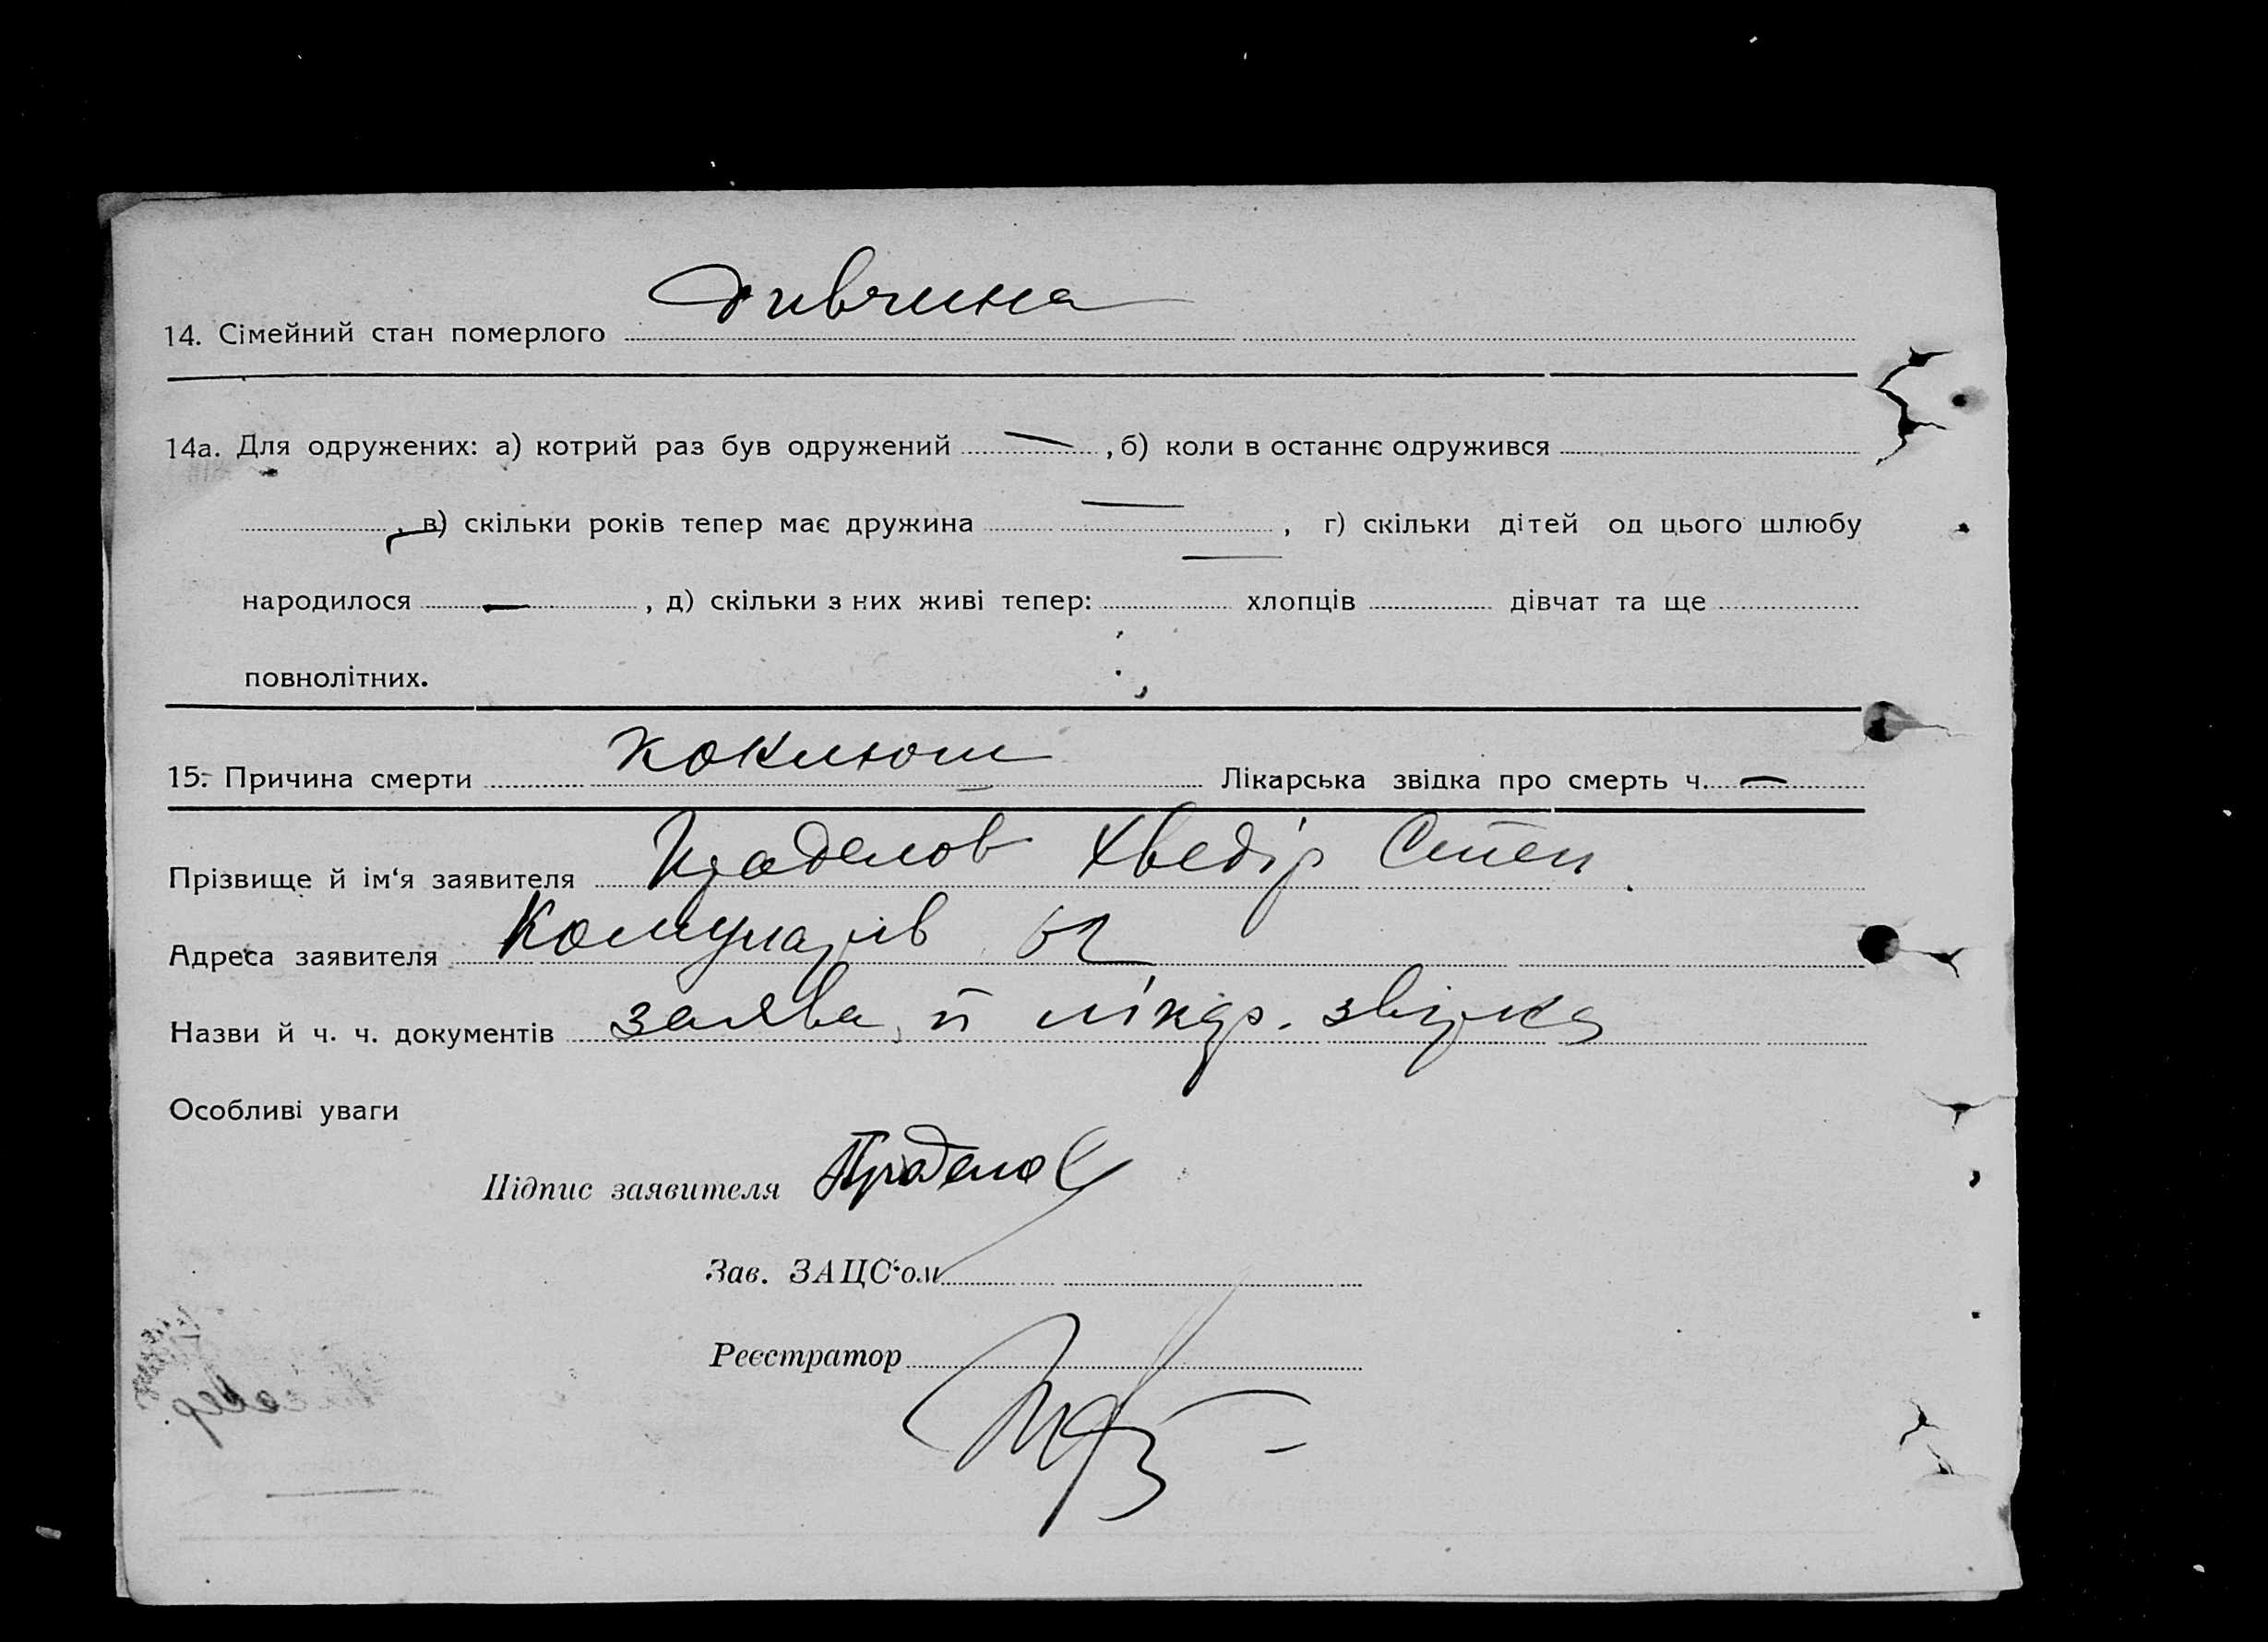 14. Сімейний стан померлого дивчина
14а. Для одружених: а) котрий раз був одружений —, б) коли в останнє одружився
, в) скільки років тепер має дружина —, г) скільки дітей од цього шлюбу
народилося —, д) скільки з них живі тепер: — хлопців дівчат та ще
повнолітних.
15. Причина смерти коклюш Лікарська звідка про смерть ч. —
Прізвище й ім‘я заявителя Хведір Степ.
Адреса заявителя Комунарів
Назви й ч. ч. документів заява й лікар. звідка
Особливі уваги
Підпис заявителя
Зав. ЗАЦС‘ом
Реєстратор